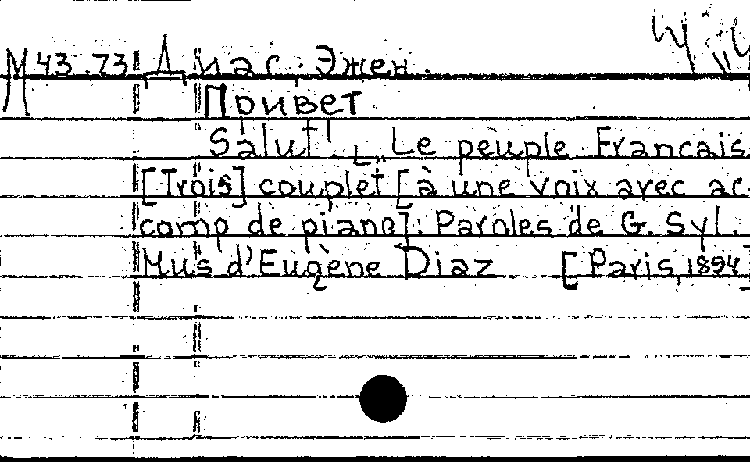 М 43.73 Диас, Эжен.
Привет
Salut! „Le peuple Francais
[Trois] couplet [à une voix avec ac
comp de piano]. Paroles de G. Syl.
Mus d'Eugène Diaz [Paris, 1894]